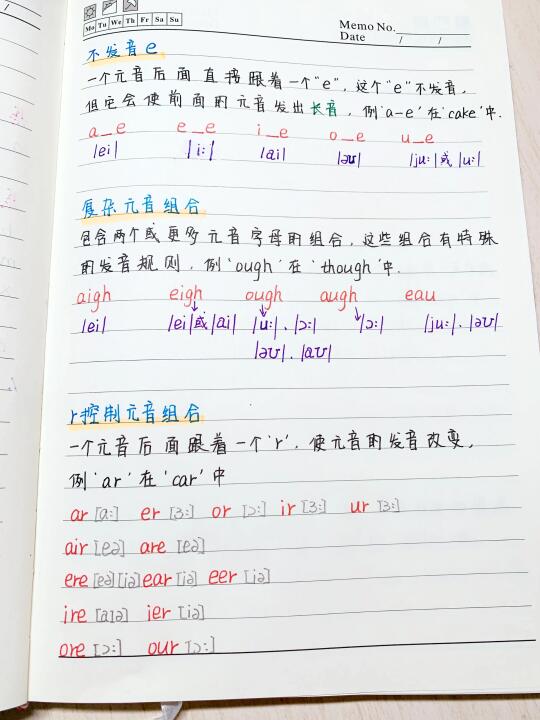 Mo Tu We Th Fr Sa Su
Memo No.
Date / /
不发音e
一个元音后面直接跟着一个"e", 这个"e"不发音,
但它会使前面的元音发出长音, 例'a-e'在'cake'中.
a_e e_e i_e o_e u_e
|ei| |i:| |ai| |əʊ| |ju:|或|u:|
复杂元音组合
包含两个或更多元音字母的组合, 这些组合有特殊
的发音规则, 例'ough'在'though'中.
aigh eigh ough augh eau
|ei| |ei|或|ai| |u:|、|ɔ:| |ɔ:| |ju:|、|əʊ|
|əʊ|、|aʊ|
r控制元音组合
一个元音后面跟着一个'r', 使元音的发音改变,
例'ar'在'car'中
ar [a:] er [ɜ:] or [ɔ:] ir [ɜ:] ur [ɜ:]
air [eə] are [eə]
ere [eə][iə] ear [iə] eer [iə]
ire [aiə] ier [iə]
ore [ɔ:] our [ɔ:]